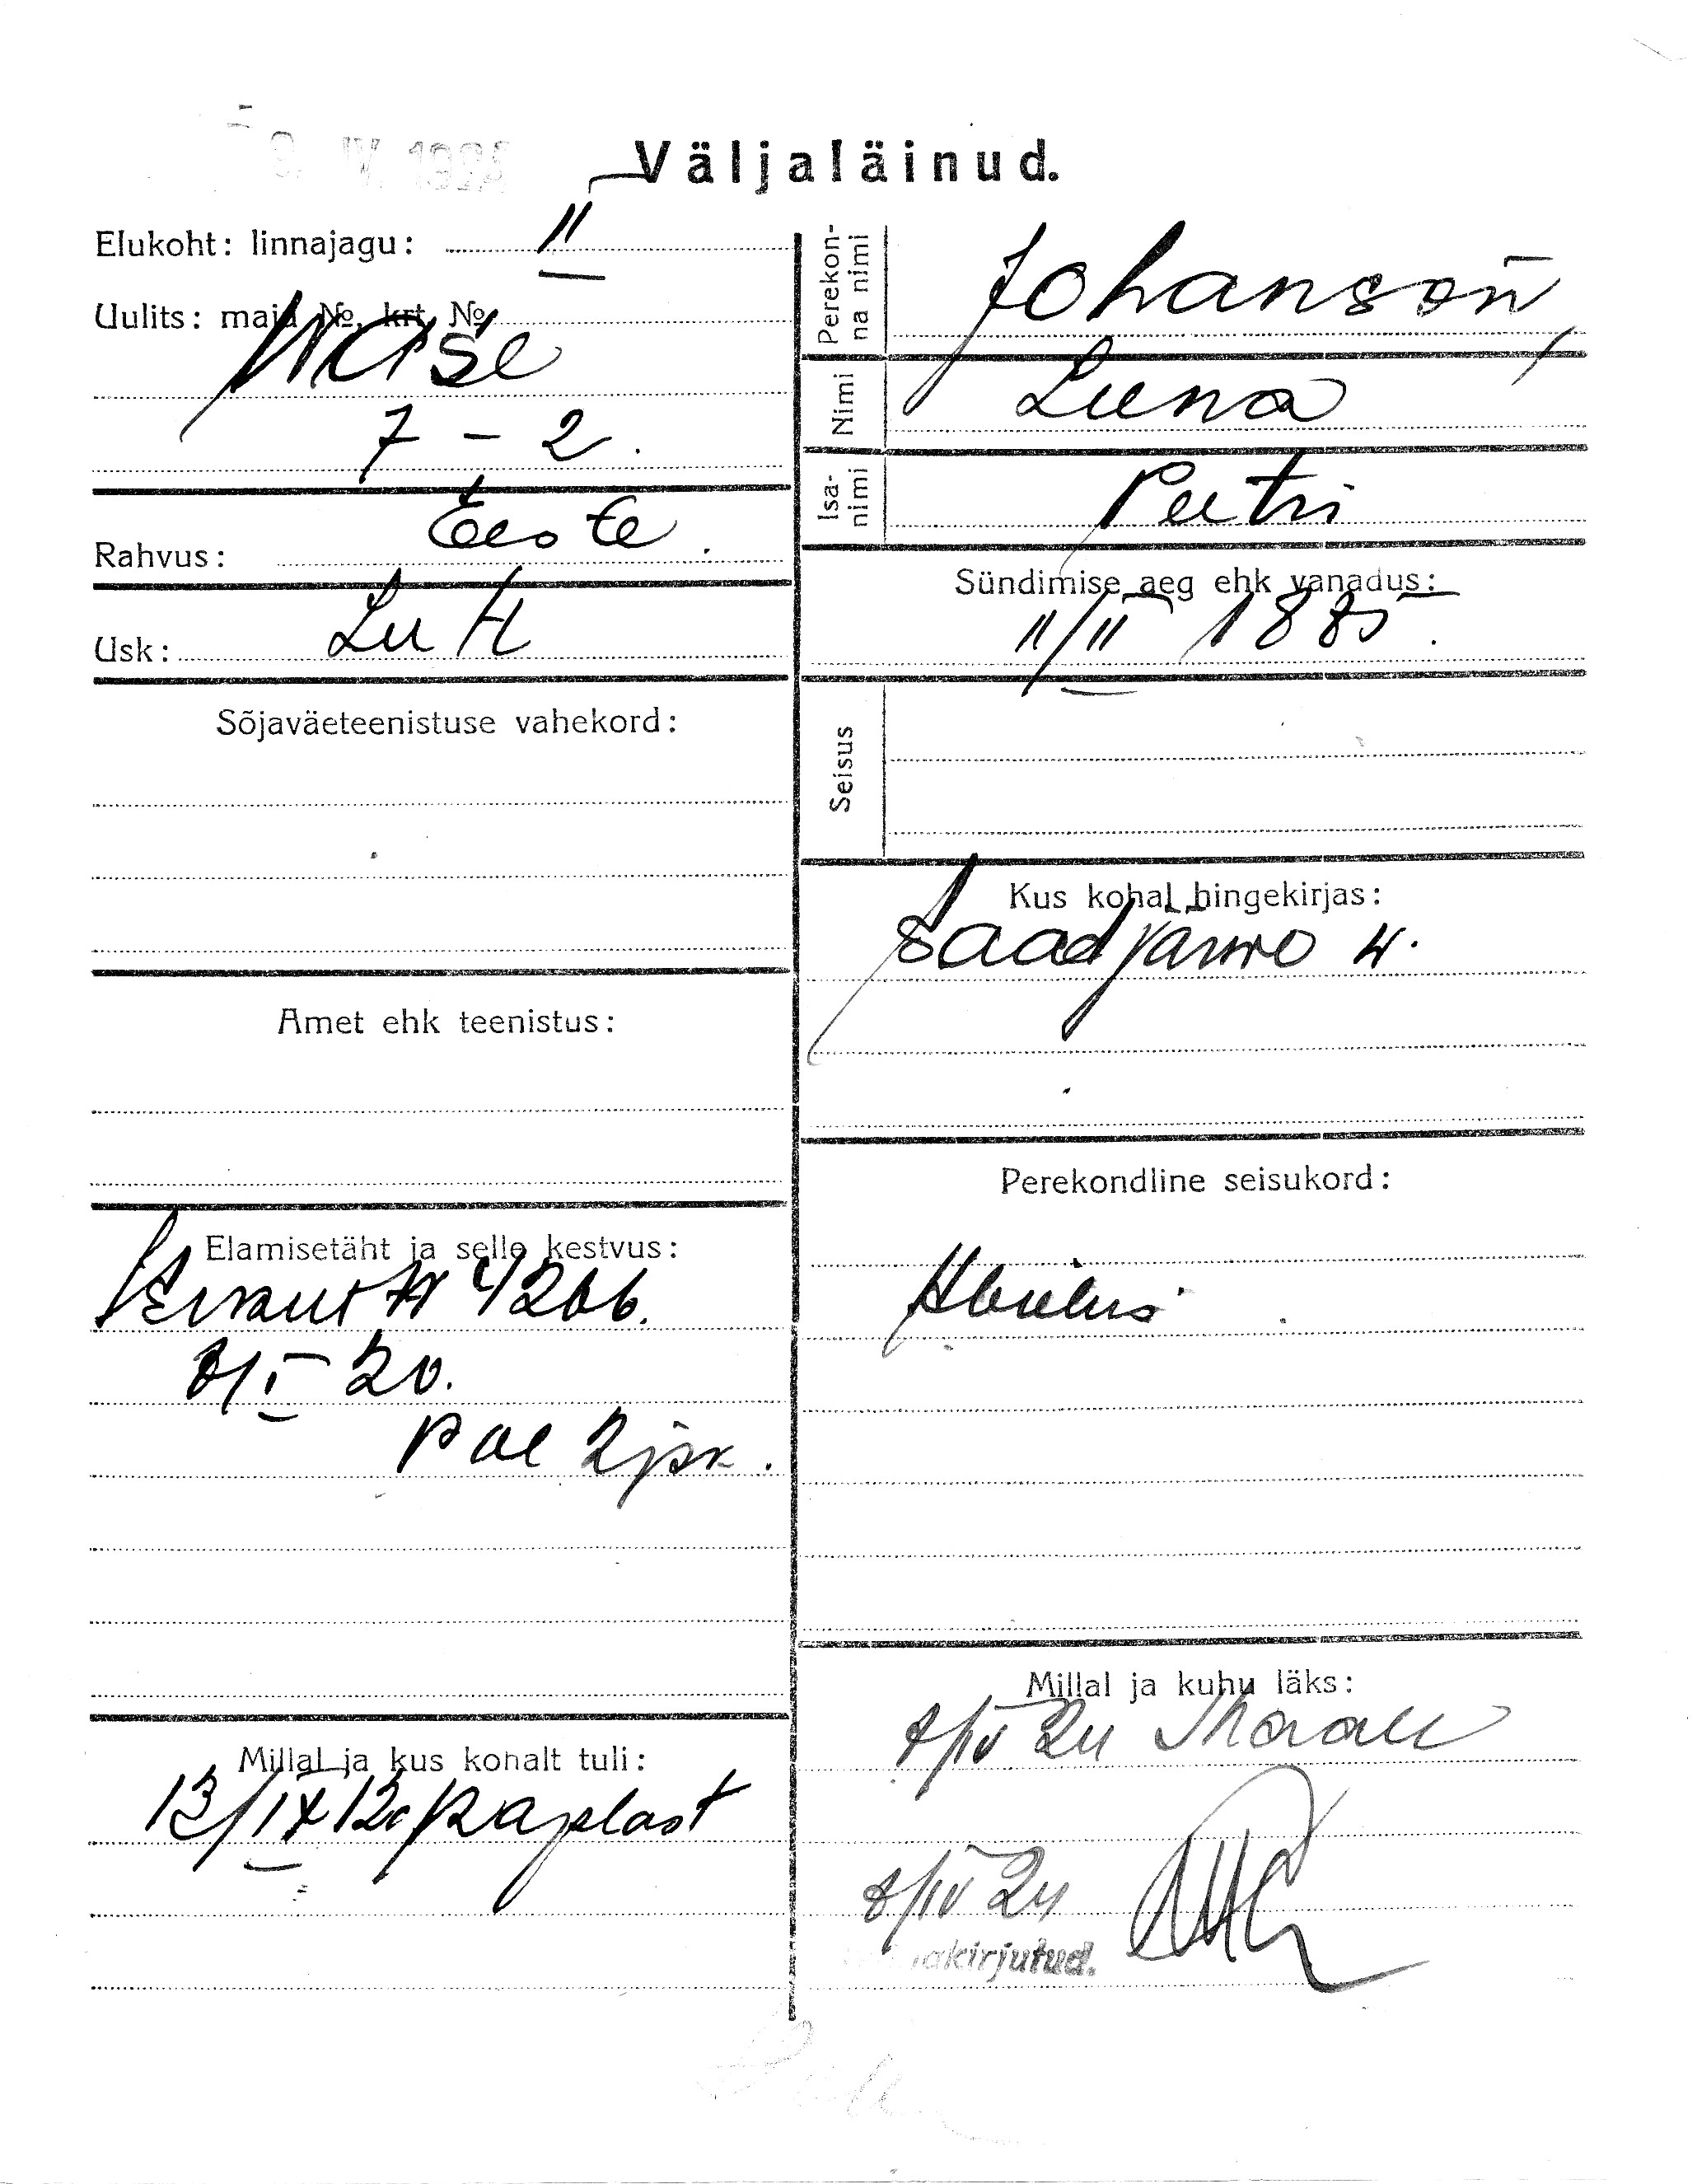 9. IV. 192
Väljaläinud.
Elukoht: linnajagu: II
Uulits: maja № krt. №
Wase
7 - 2.
Rahvus: Eeste.
Usk: Lutt
Sõjaväeteenistuse vahekord:
Amet ehk teenistus:
Elamisetäht ja selle kestvus:
4266.
8/I 20.
2 jsk.
Millal ja kus kohalt tuli:
13/IX
Perekonna nimi Johanson,
Nimi Leena
Isanimi Peetri
Sündimise aeg ehk vanadus:
11/II 1885.
Seisus
Kus kohal hingekirjas:
Saadjärwe w.
Perekondline seisukord:
Abielus
Millal ja kuhu läks:
8/IV 24
8/IV 24
kirjutud.